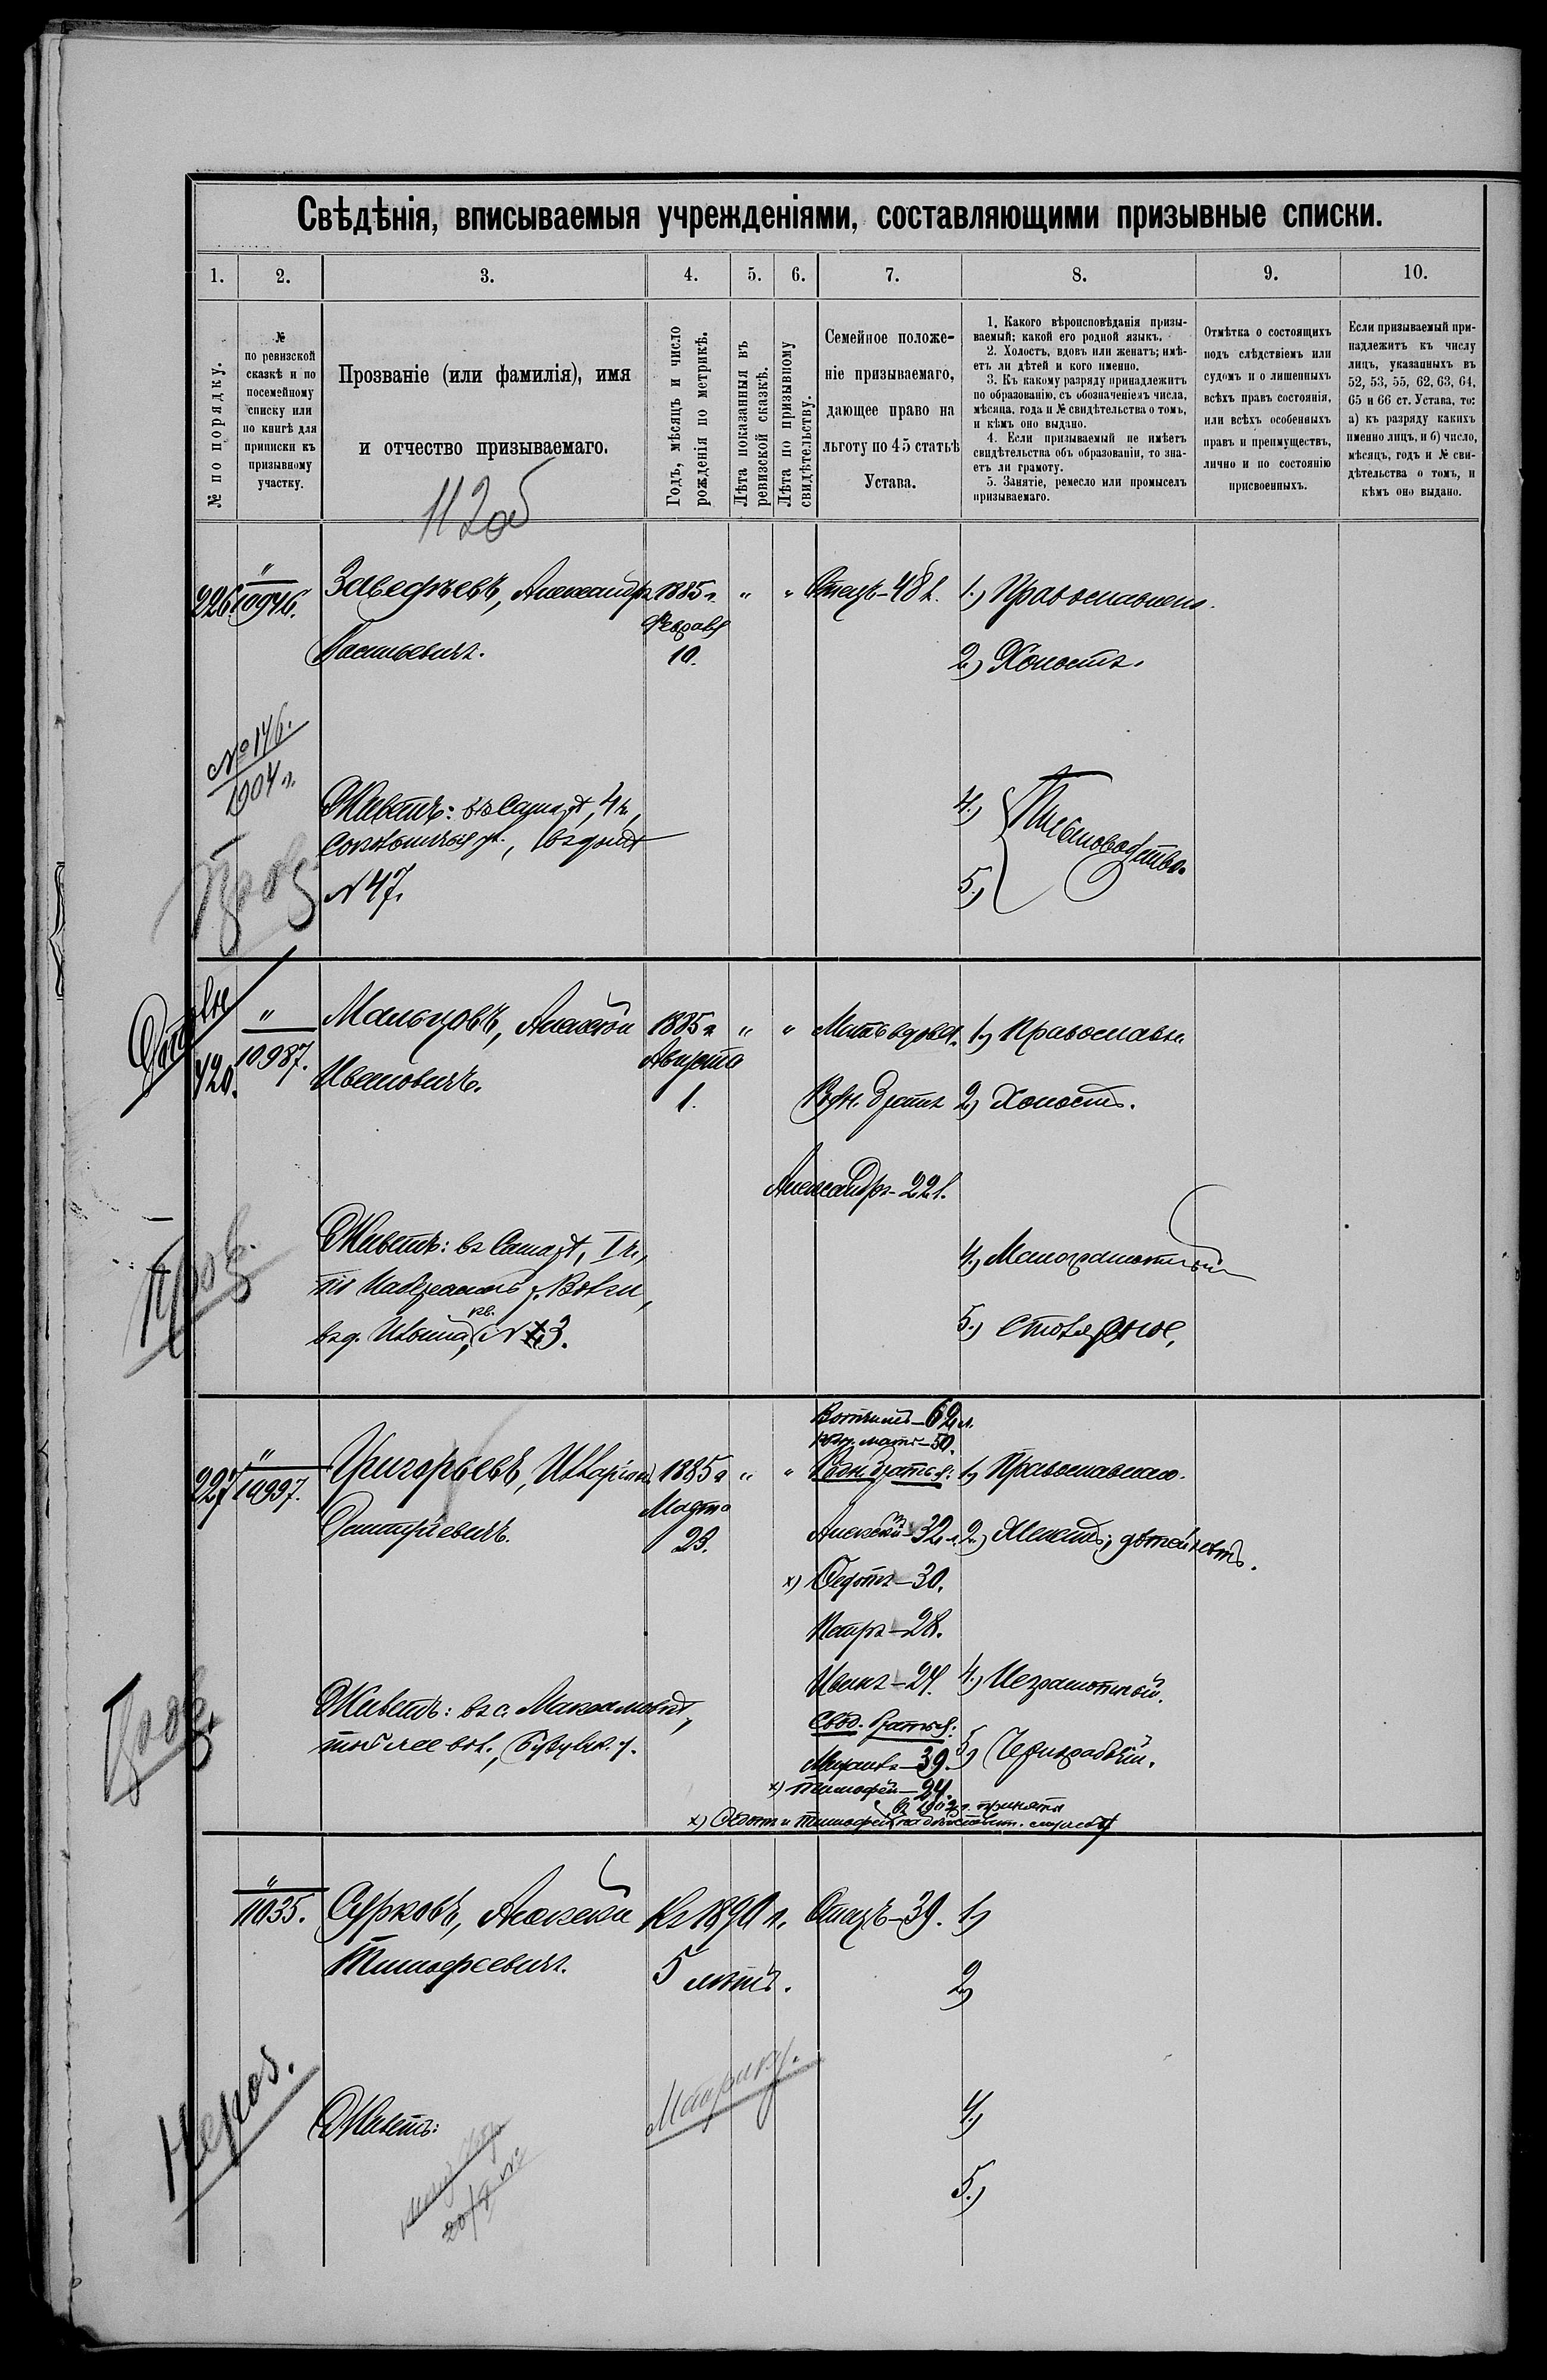 Свѣдѣнія, вписываемыя учрежденіями, составляющими призывные списки.
1. 2. 3. 4. 5. 6. 7. 8. 9. 10.
№ по порядку.
№
по ревизской
сказкѣ и по
посемейному
списку или
по книгѣ для
приписки къ
призывному
участку.
Прозваніе (или фамилія), имя
и отчество призываемаго.
Годъ, мѣсяцъ и число
рожденія по метрикѣ.
Лѣта показанныя въ
ревизской сказкѣ.
Лѣта по призывному
свидѣтельству.
Семейное положе-
ніе призываемаго,
дающее право на
льготу по 45 статьѣ
Устава.
1. Какого вѣроисповѣданія призы-
ваемый; какой его родной языкъ.
2. Холостъ, вдовъ или женатъ; имѣ-
етъ ли дѣтей и кого именно.
3. Къ какому разряду принадлежитъ
по образованію, съ обозначеніемъ числа,
мѣсяца, года и № свидѣтельства о томъ,
и кѣмъ оно выдано.
4. Если призываемый не имѣетъ
свидѣтельства объ образованіи, то зна-
етъ ли грамоту.
5. Занятіе, ремесло или промыселъ
призываемаго.
Отмѣтка о состоящихъ
подъ слѣдствіемъ или
судомъ и о лишенныхъ
всѣхъ правъ состоянія,
или всѣхъ особенныхъ
правъ и преимуществъ,
лично и по состоянію
присвоенныхъ.
Если призываемый при-
надлежитъ къ числу
лицъ, указанныхъ въ
52, 53, 55, 62, 63, 64,
65 и 66 ст. Устава, то:
а) къ разряду какихъ
именно лицъ, и б) число,
мѣсяцъ, годъ и № сви-
дѣтельства о томъ, и
кѣмъ оно выдано.
112об
226. " 10946. Александръ 1885 г. " " Отецъ - 48 л. 1.) Православнаго.
Васильевичъ. Февраля
10. 2.) Холостъ.
№ 146.
1904 г.
Живетъ: въ Самарѣ, 4 ч., 4.)
въ домѣ
№ 47. 5.)
Пров.
420. " 10987. Мальцовъ, Алексѣй 1885 г. " " Мать вдова. 1.) Православн.
Ивановичъ. Августа
1. Родн. братъ 2.) Холостъ.
Александръ - 22 л.
Живетъ: въ Самарѣ, I ч., 4.) Малограмотный
по Набережной р. Волги,
кв.
въ д. № 3. 5.) Столярное.
Пров.
Вотчимъ - 62 л.
Родн. мать - 50.
227 " 10997. Григорьевъ, Иларіонъ 1885 г. " " Родн. братья: 1.) Православнаго.
Дмитріевичъ. Марта
23. Алексѣй - 32 л. 2.) Женатъ; дѣтей нѣтъ.
х) Федотъ - 30.
Петръ - 28.
Иванъ - 24. 4.) Неграмотный.
Живетъ: въ с. Максимовкѣ,
той же вол., Бузулк. у.
Свод. братья:
Михаилъ - 39. 5.) Чернорабочій.
х) Тимофей - 24.
въ 1903 г. приняты
х) Федотъ и Тимофей на дѣйствит. службу
Пров.
" 11035. Сурковъ, Алексѣй Къ 1890 г. Отецъ - 39. 1)
Тимофеевичъ. 5 лѣтъ. 2)
Метрику.
Живетъ: 4.)
5.)